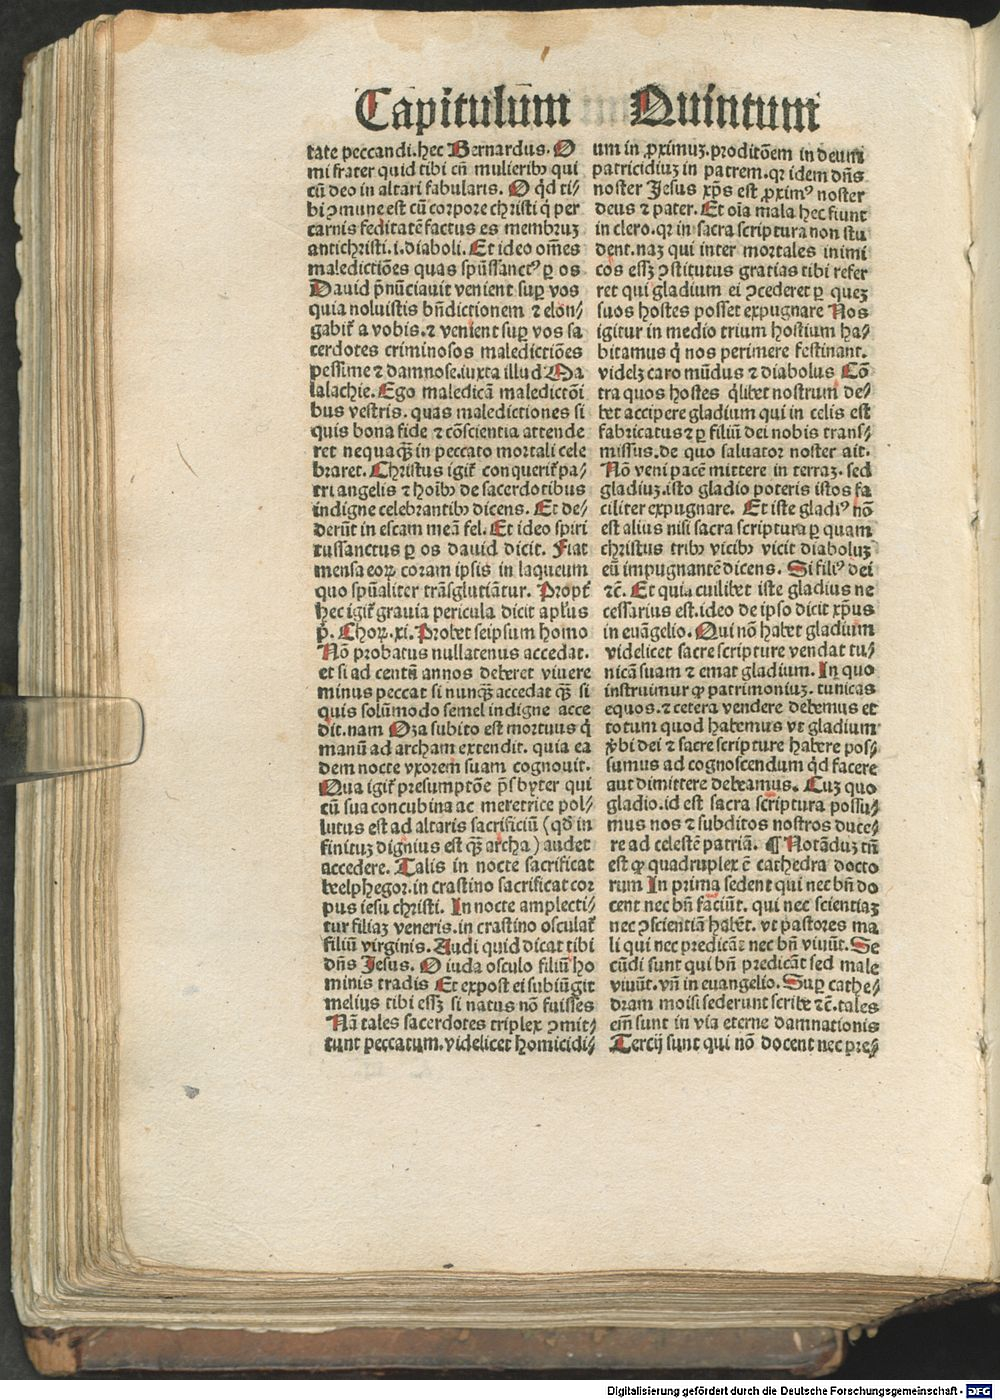 Capitulum Quintum
tate peccandi.hec Bernardus. O
mi frater quid tibi cū mulierib⁹ qui
cū deo in altari fabularis. O qͥd ti⸗
bi ꝯmune est cū corpore christi qͥ per
carnis feditatē factus es membruꝫ
antichristi.i.diaboli. Et ideo om̄es
maledictiōes quas spūssanct⁹ ꝑ os
Dauid p̄nūciauit venient suꝑ vos
quia noluistis bn̄dictionem ⁊ elōn⸗
gabit᷑ a vobis.⁊ venient suꝑ vos sa
cerdotes criminosos maledictiōes
pessime ⁊ damnose.iuxta illud Ma
lalachie. Ego maledicā maledictōi
bus vestris. quas maledictiones si
quis bona fide ⁊ cōscientia attende
ret nequaqꝫ̄ in peccato mortali cele
braret. Christus igit᷑ conquerit᷑ pa⸗
tri angelis ⁊ hoīb⁹ de sacerdotibus
indigne celebrantib⁹ dicens. Et de⸗
derūt in escam meā fel. Et ideo spiri
tussanctus ꝑ os dauid dicit. Fiat
mensa eoꝝ coram ipsis in laqueum
quo spūaliter trāsglutiātur. Propt᷑
hec igit᷑ grauia pericula dicit apl̄us
p̄. Choꝝ.xi. Probet seipsum homo
Nō probatus nullatenus accedat.
et si ad centū annos deberet viuere
minus peccat si nunqꝫ̄ accedat qꝫ̄ si
quis solūmodo semel indigne acce
dit.nam Oza subito est mortuus qͥ
manū ad archam extendit. quia ea
dem nocte vxorem suam cognouit.
Qua igit᷑ presumptōe p̄sbyter qui
cū sua concubina ac meretrice pol⸗
lutus est ad altaris sacrificiū (qd̄ in
finituꝫ dignius est qꝫ̄ archa) audet
accedere. Talis in nocte sacrificat
beelphegor.in crastino sacrificat cor
pus iesu christi. In nocte amplecti⸗
tur filiaꝫ veneris.in crastino osculat᷑
filiū virginis. Audi quid dicat tibi
dn̄s Jesus. O iuda osculo filiū ho
minis tradis Et expost ei subiūgit
melius tibi essꝫ si natus nō fuisses
Nā tales sacerdotes triplex ꝯmit⸗
tunt peccatum.videlicet homicidi⸗
um in ꝓximuꝫ.proditōem in deum
patricidiuꝫ in patrem.qꝛ idem dn̄s
noster Jesus xp̄s est ꝓxim⁹ noster
deus ⁊ pater. Et oīa mala hec fiunt
in clero.qꝛ in sacra scriptura non stu
dent.naꝫ qui inter mortales inimi
cos essꝫ ꝯstitutus gratias tibi refer
ret qui gladium ei ꝯcederet ꝑ queꝫ
suos hostes posset expugnare Nos
igitur in medio trium hostium ha⸗
bitamus qͥ nos perimere festinant.
videlꝫ caro mūdus ⁊ diabolus Cō
tra quos hostes qͥlibet nostrum de⸗
bet accipere gladium qui in celis est
fabricatus ⁊ ꝑ filiū dei nobis trans⸗
missus.de quo saluator noster ait.
Nō veni pacē mittere in terraꝫ. sed
gladiuꝫ.isto gladio poteris istos fa
ciliter expugnare. Et iste gladi⁹ nō
est alius nisi sacra scriptura ꝑ quam
christus trib⁹ vicib⁹ vicit diaboluꝫ
eū impugnantē dicens. Si fili⁹ dei
⁊c̄. Et quia cuilibet iste gladius ne
cessarius est.ideo de ipso dicit xp̄us
in euāgelio. Qui nō habet gladium
videlicet sacre scripture vendat tu⸗
nicā suam ⁊ emat gladium. In quo
instruimur ꝙ patrimoniuꝫ. tunicas
equos.⁊ cetera vendere debemus et
totum quod habemus vt gladium
v̓bi dei ⁊ sacre scripture habere pos⸗
sumus ad cognoscendum qͥd facere
aut dimittere debeamus. Cuꝫ quo
gladio.id est sacra scriptura possu⸗
mus nos ⁊ subditos nostros duce⸗
re ad celestē patriā. ¶ Notāduꝫ tn̄
est ꝙ quadruplex ē cathedra docto
rum In prima sedent qui nec bn̄ do
cent nec bn̄ faciūt. qui nec scientiaꝫ
nec ꝯscientiā habēt. vt pastores ma
li qui nec predicāt nec bn̄ viuūt. Se
cūdi sunt qui bn̄ predicāt sed male
viuūt.vn̄ in euangelio. Suꝑ cathe⸗
dram moisi sederunt scribe ⁊c̄.tales
em̄ sunt in via eterne damnationis
Tercij sunt qui nō docent nec pre⸗
Digitalisierung gefördert durch die Deutsche Forschungsgemeinschaft - DFG